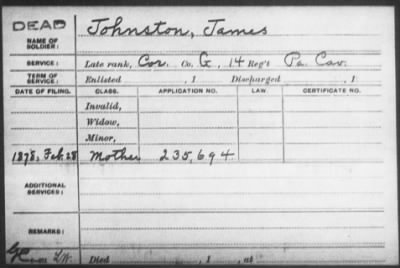 DEAD
NAME OF SOLDIER: Johnston, James
SERVICE: Late rank, Cor. Co. G, 14 Reg't Pa. Cav.
TERM OF SERVICE: Enlisted , 1 Discharged , 1
DATE OF FILING. CLASS. APPLICATION NO. LAW. CERTIFICATE NO.
Invalid,
Widow,
Minor,
1878, Feb. 28 Mother 235,694
ADDITIONAL SERVICES:
REMARKS:
Died , 1 , at